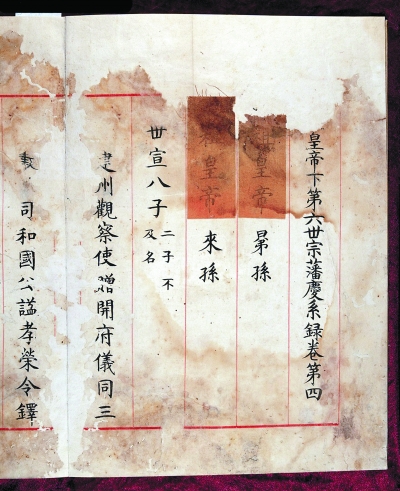 皇帝下第六世宗藩慶系録卷第四
皇帝 晜孫
皇帝 來孫
世宣八子 二子不
及名
建州觀察使贈開府儀同三
司和國公謚孝榮令鐸